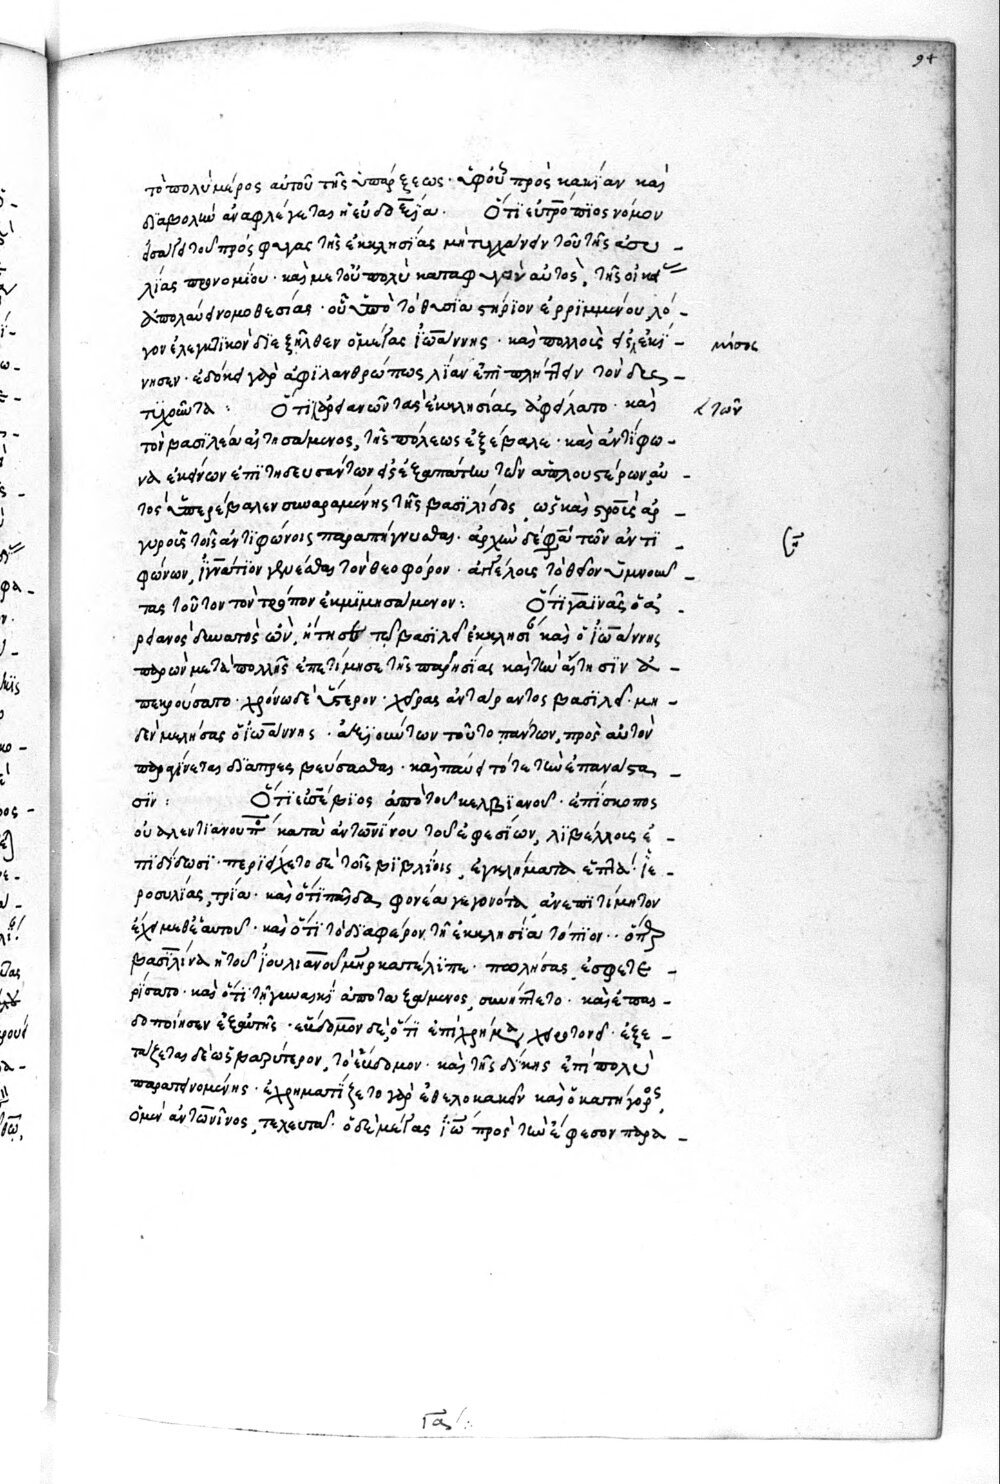 94
τὸ πολυμερὸς αὐτοῦ τῆς ὑπάρξεως · ὑφ' οὗ πρὸς κακίαν καὶ
διαβολὴν ἀναφλέγεται ἡ εὐδοξία · Ὅτι εὐτρόπιος νόμον
τοὺς πρόσφυγας τῆς ἐκκλησίας μὴ τυγχάνειν τοῦ τῆς ἀσυ -
λίας προνομίου · καὶ μετ' οὐ πολὺ καταφυγὼν αὐτὸς, τῆς οἰκεί
ἀπολαύει νομοθεσίας · οὗ ὑπὸ τὸ θυσιαστήριον ἐρριμμένου, λό -
γον ἐλεγκτικὸν διεξῆλθεν ὁ μέγας ἰωάννης · καὶ πολλοὺς εἰς ἐκεί - μῖσος
νησεν · ἐδόκει γὰρ ἀφιλανθρώπως λίαν ἐπιπλήττειν τὸν δυς -
τυχοῦντα : Ὅτι ἀρειανῶν τὰς ἐκκλησίας ἀφείλατο · καὶ τῶν
τὸν βασιλέα αἰτησάμενος, τῆς πόλεως ἐξέβαλε · καὶ ἀντίφω -
να ἐκείνων ἐπιτηδευσάντων εἰς ἐξαπάτην τῶν ἁπλουστέρων, αὐ -
τὸς ὑπερέβαλεν συναραμένης τῆς βασιλίδος, ὡς καὶ σταυροὺς ἀρ -
γυροῦς τοῖς ἀντιφώνοις παραπήγνυσθαι · ἀρχὴν δέ φασι τῶν ἀντι -
φώνων, ἰγνάτιον γενέσθαι τὸν θεοφόρον · ἀγγέλοις τὸ θεῖον ὑμνοῦν -
τας τοῦτον τὸν τρόπον ἐκμιμησάμενον : Ὅτι γαϊνᾶς ὁ ἀ -
ρειανὸς δυνατὸς ὢν, ᾐτήσατο τῷ βασιλεῖ ἐκκλησίαν καὶ ὁ ἰωάννης
παρὼν μετὰ πολλῆς ἐπετίμησε τῆς παρρησίας καὶ τὴν αἴτησιν ἀ -
πεκρούσατο · χρόνω δὲ ὕστερον · χεῖρας ἀνταίραντος βασιλεῖ · μη -
δὲν μελήσας ὁ ἰωάννης · ἀξιούντων τοῦτο πάντων, πρὸς αὐτὸν
παραγίνεται διαπρεσβεύσασθαι · καὶ παύει τότε τὴν ἐπανάστα -
σιν : Ὅτι εὐσέβιος ἀπὸ τοῦ κελβιανοῦ · ἐπίσκοπος
οὐαλεντιανουπόλεως κατὰ ἀντωνίνου τοῦ ἐφεσίων, λιβέλλους ἐ -
πιδίδωσι · περιείχετο δὲ τοῖς βιβλίοις, ἐγκλήματα ἑπτά · ἱε -
ροσυλίας, τρία · καὶ ὅτι παῖδα, φονέα γεγονότα, ἀνεπιτίμητον
ἔχει μεθ' ἑαυτοῦ · καὶ ὅτι τὸ διαφέρον τῇ ἐκκλησία τόπιον · ὅπερ
βασιλίνα ἡ τοῦ ἰουλιανοῦ μήτηρ κατέλιπε · πωλήσας, ἐσφετε -
ρίσατο · καὶ ὅτι τῇ γυναικὶ ἀποταξάμενος, συνήπτετο · καὶ ἐπαι -
δοποίησεν ἐξ αὐτῆς · ἕβδομον δὲ, ὅτι ἐπὶ χρήμασι, χειροτονεῖ · ἐξε -
τάζεται δὲ ὡς βαρύτερον, τὸ ἕβδομον · καὶ τῆς δίκης ἐπὶ πολὺ
παρατεινομένης · ἐχρηματίζετο γὰρ ἐθελοκακεῖν καὶ ὁ κατήγορος,
ὁ μὲν ἀντωνῖνος, τελευτᾶ · ὁ δὲ μέγας ἰω πρὸς τὴν ἔφεσον παρα -